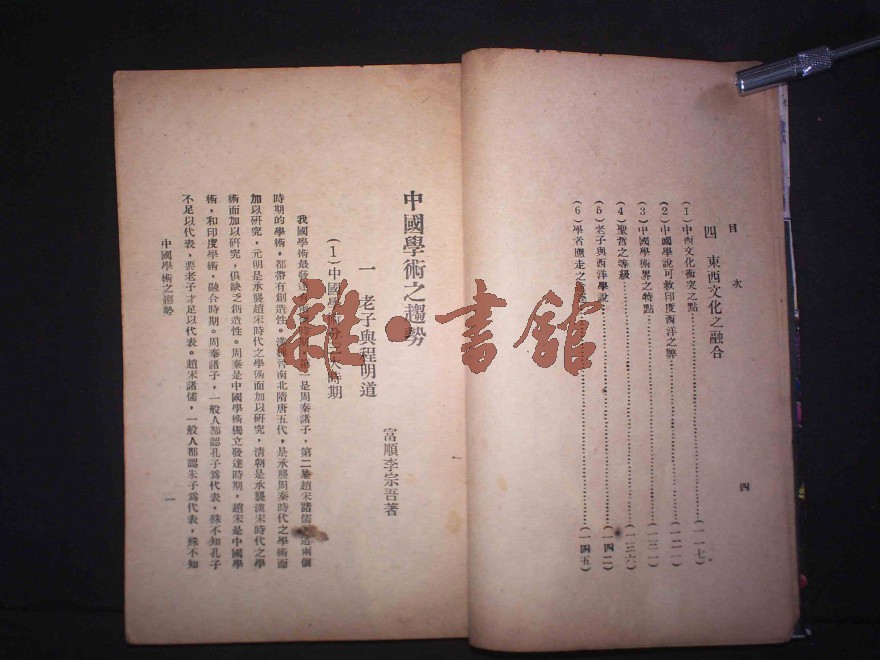 目次
四 東西文化之融合
(1)中西文化衝突之點……(一一七)
(2)中國學說可救印度西洋之弊……(一二一)
(3)中國學術界之特點……(一三一)
(4)聖哲之等級……(一三六)
(5)老子與西洋學說……(一四二)
(6)學者應走之……(一四五)
四
中國學術之趨勢
富順李宗吾著
一 老子與程明道
(1)中國學術分三大時期
我國學術最發達有兩個時期,第一是周秦諸子,第二是趙宋諸儒,這兩個
時期的學術,都帶有創造性。漢魏晉南北隋唐五代,是承襲周秦時代之學術而
加以研究,元明是承襲趙宋時代之學術而加以研究,清朝是承襲漢宋時代之學
術而加以研究,俱缺乏創造性。周秦是中國學術獨立發達時期,趙宋是中國學
術,和印度學術,融合時期。周秦諸子,一般人都認孔子爲代表,殊不知孔子
不足以代表,要老子才足以代表。趙宋諸儒,一般人都認朱子爲代表,殊不知
中國學術之趨勢
一
雜·書館